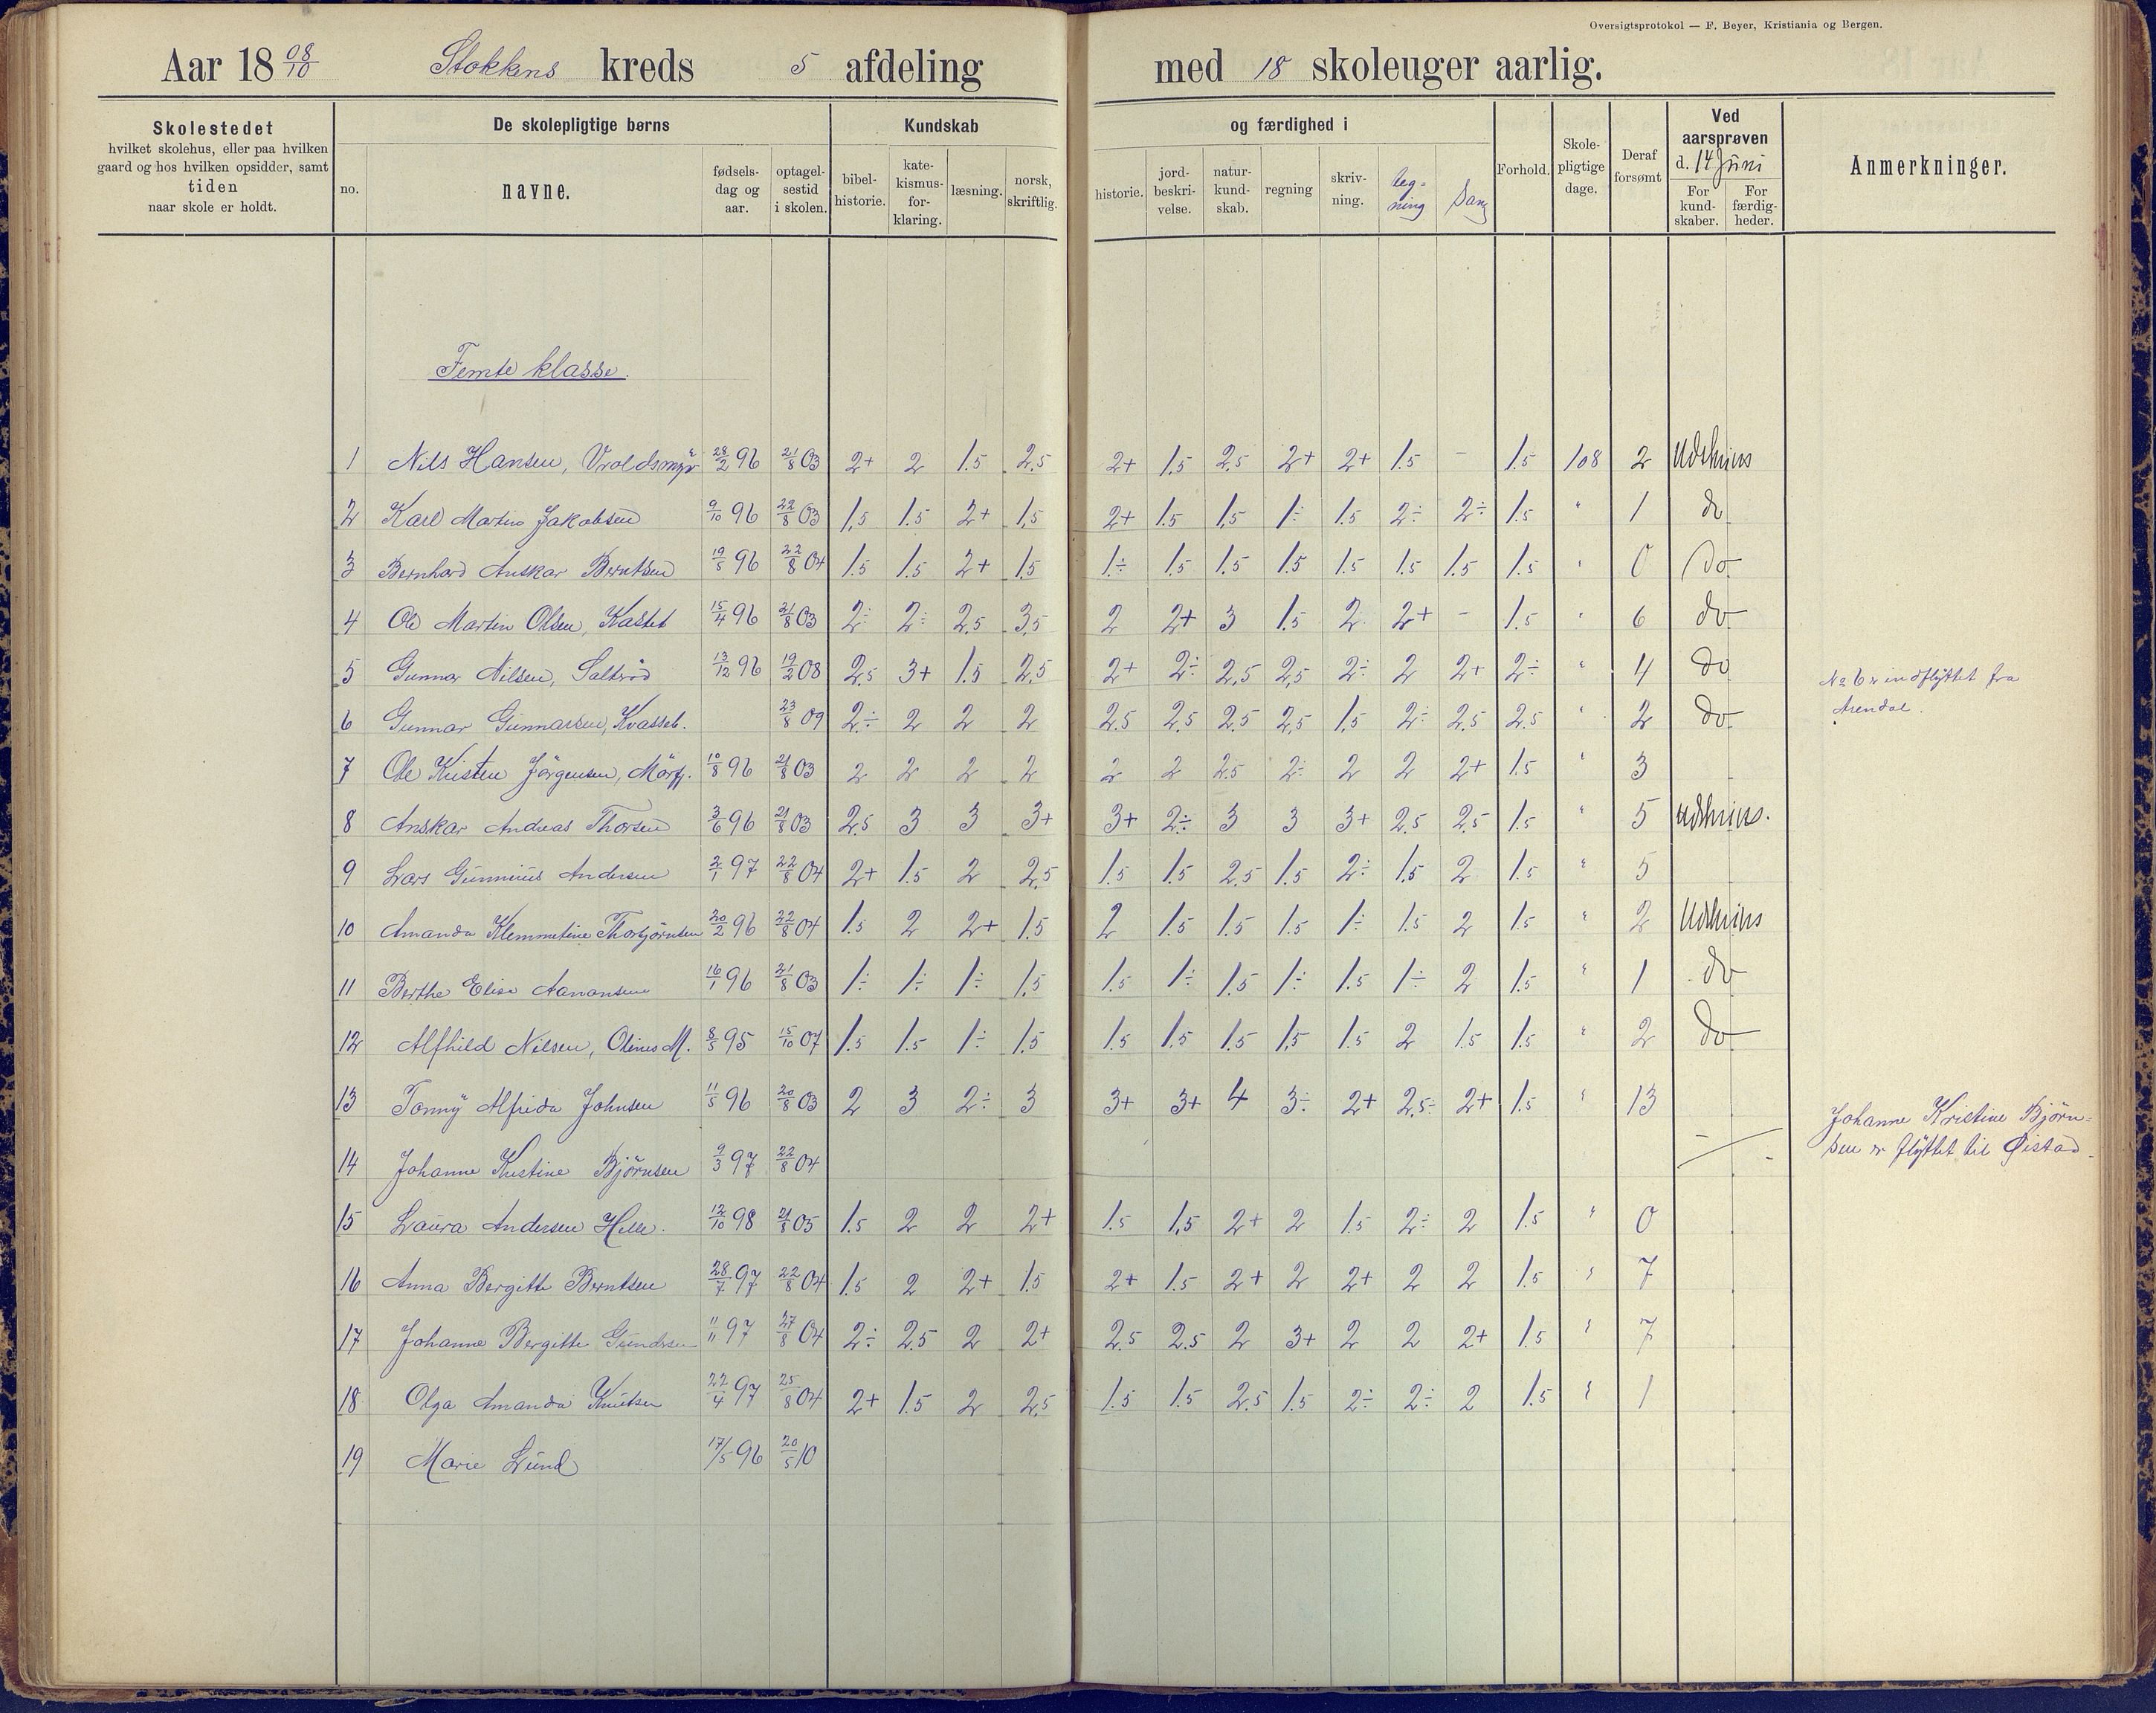 Oversigtsprotokol — F. Beyer, Kristiania og Bergen.
Aar 18 08/10 Stokkens kreds 5 afdeling med 18 skoleuger aarlig.
Skolestedet
hvilket skolehus, eller paa hvilken
gaard og hos hvilken opsidder, samt
tiden
naar skole er holdt.
De skolepligtige børns
no.
navne.
fødsels-
dag og
aar.
optagel-
sestid
i skolen.
Kundskab
bibel-
historie.
kate-
kismus-
for-
klaring.
læsning.
norsk,
skriftlig.
og færdighed i
historie.
jord-
beskri-
velse.
natur-
kund-
skab.
regning
skriv-
ning.
teg-
ning
Sang
Forhold.
Skole-
pligtige
dage.
Deraf
forsømt
Ved
aarsprøven
d. 14 Juni
For
kund-
skaber.
For
færdig-
heder.
Anmerkninger.
Femte klasse.
1 Nils Hansen, Vroldsmyr 28/2 96 21/8 03 2+ 2 1.5 2.5 2+ 1.5 2.5 2+ 2+ 1.5 – 1.5 108 2 Udskrives
2 Karl Martin Jakobsen 9/10 96 22/8 03 1.5 1.5 2+ 1.5 2+ 1.5 1.5 1÷ 1.5 2÷ 2÷ 1.5 " 1 do
3 Bernhard Anskar Berntsen 19/5 96 22/8 04 1.5 1.5 2+ 1.5 1÷ 1.5 1.5 1.5 1.5 1.5 1.5 1.5 " 0 do
4 Ole Martin Olsen, Kastet 15/4 96 21/8 03 2÷ 2÷ 2.5 3.5 2 2+ 3 1.5 2 2+ – 1.5 " 6 do
5 Gunnar Nilsen, Saltrød 13/12 96 19/2 08 2.5 3+ 1.5 2.5 2+ 2÷ 2.5 2.5 2÷ 2 2+ 2÷ " 4 do
No 6 er indflyttet fra
Arendal.
6 Gunnar Gunnarsen, Kvasseb. 23/8 09 2÷ 2 2 2 2.5 2.5 2.5 2.5 1.5 2÷ 2.5 2.5 " 2 do
7 Ole Kristen Jörgensen, Mörfj. 10/8 96 21/8 03 2 2 2 2 2 2 2.5 2÷ 2 2 2+ 1.5 " 3
8 Anskar Andreas Thorsen 3/6 96 21/8 03 2.5 3 3 3+ 3+ 2÷ 3 3 3+ 2.5 2.5 1.5 " 5 udskrives.
9 Lars Gunnius Andersen 2/1 97 22/8 04 2+ 1.5 2 2.5 1.5 1.5 2.5 1.5 2÷ 1.5 2 1.5 " 5
10 Amanda Klemmetine Thorbjörnsen 20/2 96 22/8 04 1.5 2 2+ 1.5 2 1.5 1.5 1.5 1÷ 1.5 2 1.5 " 2 Udskrives
11 Berthe Elise Aanonsen 16/1 96 21/8 03 1÷ 1÷ 1÷ 1.5 1.5 1÷ 1.5 1÷ 1.5 1÷ 2 1.5 " 1 do
12 Alfhild Nilsen, Olines M. 8/5 95 15/10 07 1.5 1.5 1÷ 1.5 1.5 1.5 1.5 1.5 1.5 2 1.5 1.5 " 2 do
13 Tonny Alfrida Johnsen 11/5 96 20/8 03 2 3 2÷ 3 3+ 3+ 4 3÷ 2+ 2.5÷ 2+ 1.5 " 13
Johanne Kristine Bjørn-
sen er flyttet til Øistad.
14 Johanne Kristine Björnsen 9/3 97 22/8 04
15 Laura Andersen Helle. 12/10 98 21/8 05 1.5 2 2 2+ 1.5 1.5 2+ 2 1.5 2÷ 2 1.5 " 0
16 Anna Bergitte Berntsen 28/7 97 22/8 04 1.5 2 2+ 1.5 2+ 1.5 2+ 2 2+ 2 2 1.5 " 7
17 Johanne Bergitte Gundersen 11/11 97 27/8 04 2÷ 2.5 2 2+ 2.5 2.5 2 3+ 2 2 2+ 1.5 " 7
18 Olga Amanda Knutsen 22/4 97 25/8 04 2+ 1.5 2 2.5 1.5 1.5 2.5 1.5 2÷ 2÷ 2 1.5 " 1
19 Marie Lund 17/5 96 20/5 10